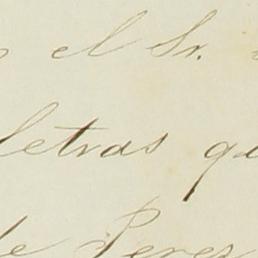 el Sr.
letras qu
de Perez